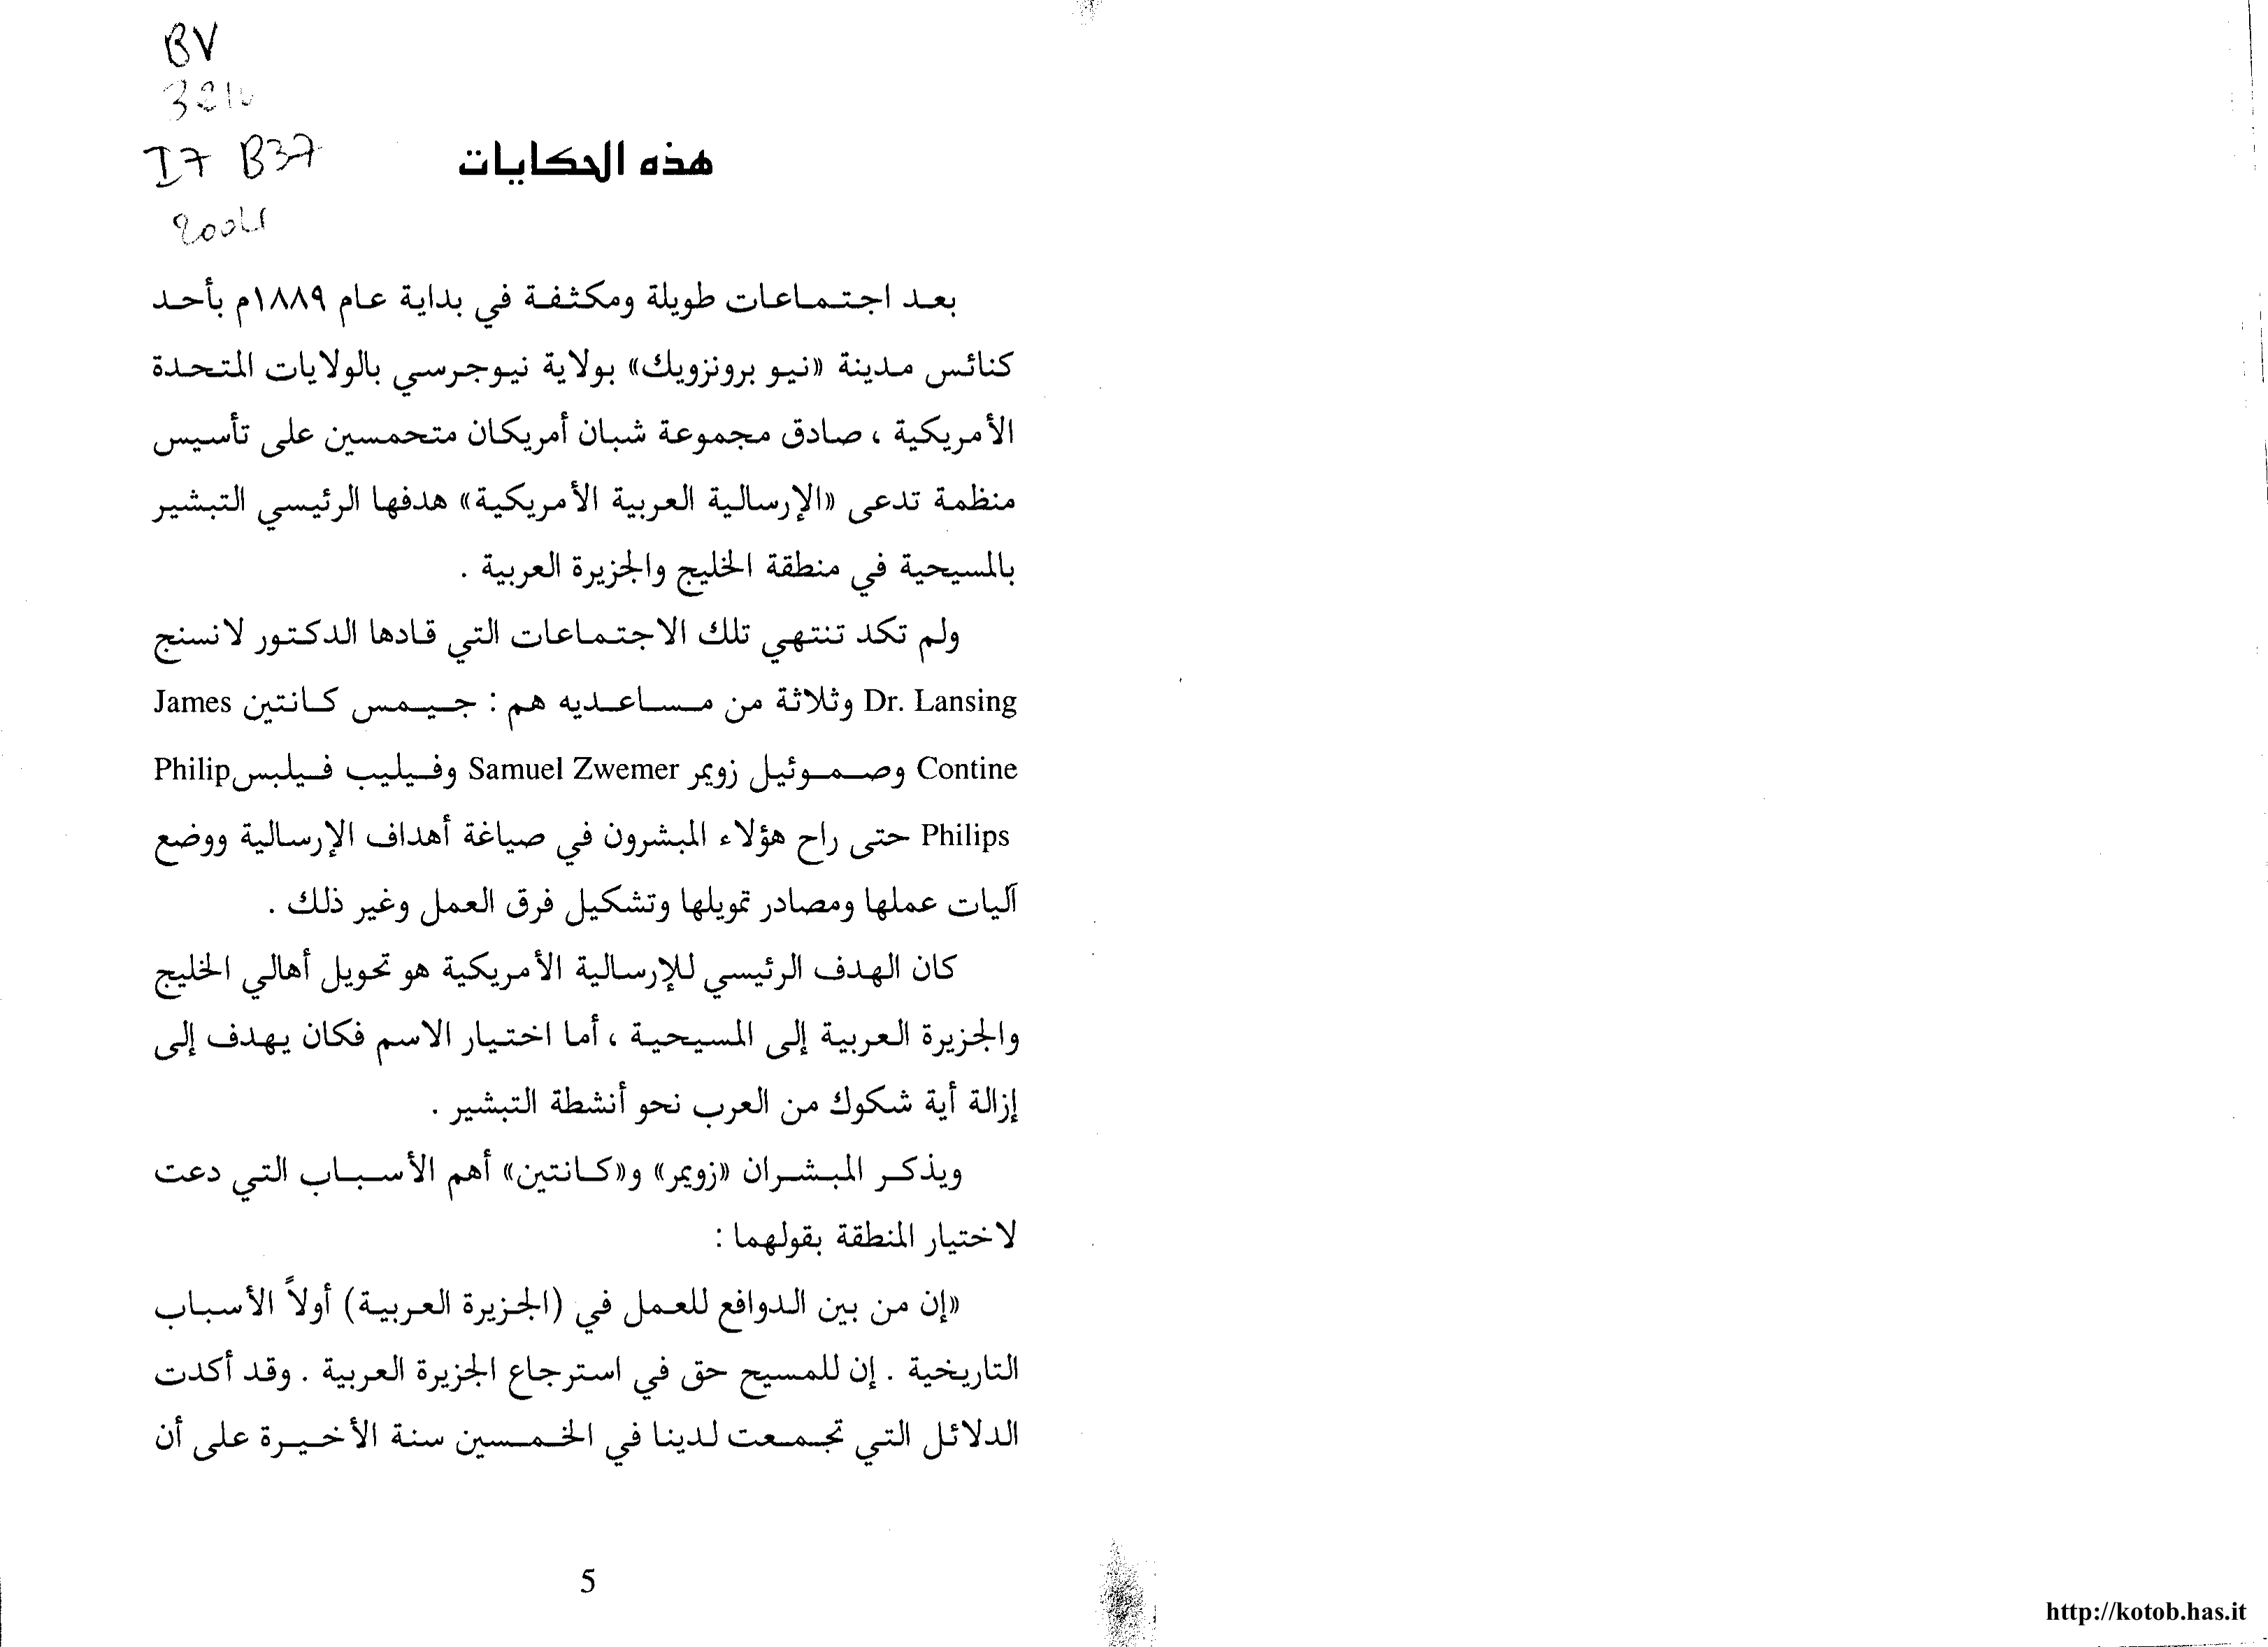 BV
I7 B37
2004
هذه الحكايات
بعد اجتماعات طويلة ومكثفة في بداية عام ١٨٨٩م بأحد
كنائس مدينة «نيو برونزويك» بولاية نيوجرسي بالولايات المتحدة
الأمريكية ، صادق مجموعة شبان أمريكان متحمسين على تأسيس
منظمة تدعى «الإرسالية العربية الأمريكية» هدفها الرئيسي التبشير
بالمسيحية في منطقة الخليج والجزيرة العربية .
ولم تكد تنتهي تلك الاجتماعات التي قادها الدكتور لانسنج
Dr. Lansing وثلاثة من مساعديه هم : جيمس كانتين James
Contine وصموئيل زويمر Samuel Zwemer وفيليب فيلبس Philip
Philips حتى راح هؤلاء المبشرون في صياغة أهداف الإرسالية ووضع
آليات عملها ومصادر تمويلها وتشكيل فرق العمل وغير ذلك .
كان الهدف الرئيسي للإرسالية الأمريكية هو تحويل أهالي الخليج
والجزيرة العربية إلى المسيحية ، أما اختيار الاسم فكان يهدف إلى
إزالة أية شكوك من العرب نحو أنشطة التبشير .
ويذكر المبشران «زويمر» و«كانتين» أهم الأسباب التي دعت
لاختيار المنطقة بقولهما :
«إن من بين الدوافع للعمل في (الجزيرة العربية) أولاً الأسباب
التاريخية . إن للمسيح حق في استرجاع الجزيرة العربية . وقد أكدت
الدلائل التي تجمعت لدينا في الخمسين سنة الأخيرة على أن
5
http://kotob.has.it